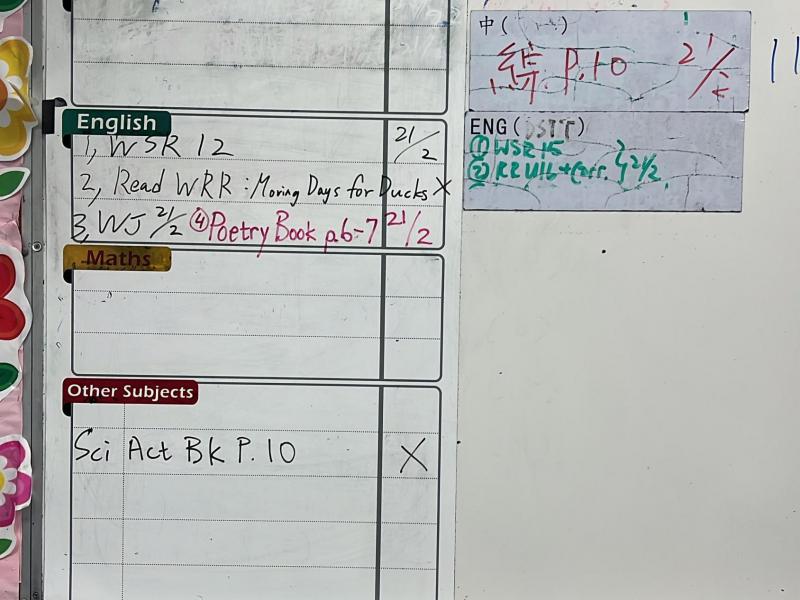 English
1, WSR 12 21/2
2, Read WRR : Moving Days for Ducks X
3, WJ 21/2 ④Poetry Book p.6-7 21/2
Maths
Other Subjects
Sci Act Bk P. 10 X
中( )
P.10 21/2
ENG(DSTT)
① WSR 15
② RR U16 + Corr. } 21/2
11